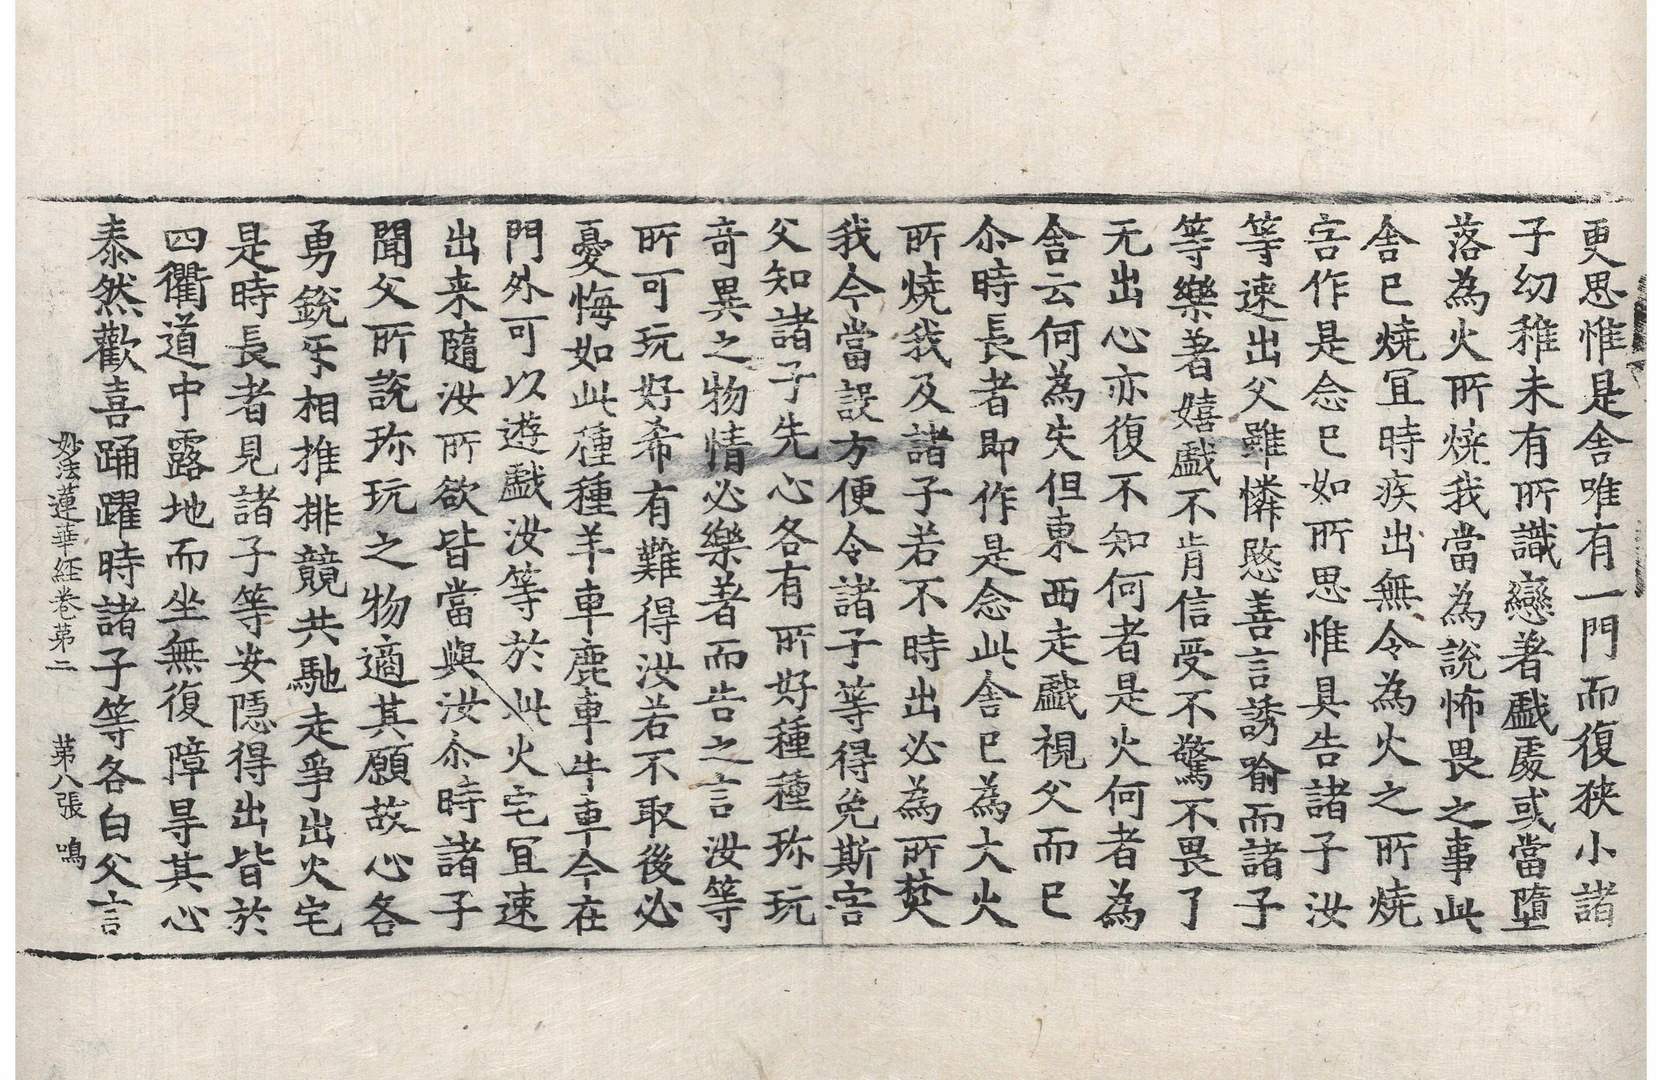 更思惟是舎唯有一門而復狹小諸
子幼稚未有所識戀著戲處或當墮
落為火所燒我當為說怖畏之事此
舎已燒冝時疾出無令為火之所燒
害作是念已如所思惟具告諸子汝
等速出父雖憐愍善言誘喻而諸子
等樂著嬉戲不肯信受不驚不畏了
无出心亦復不知何者是火何者為
舎云何為失但東西走戲視父而已
尒時長者即作是念此舎已為大火
所燒我及諸子若不時出必為所焚
我今當設方便令諸子等得免斯害
父知諸子先心各有所好種種珎玩
竒異之物情必樂著而告之言汝等
所可玩好希有難得汝若不取後必
憂悔如此種種羊車鹿車牛車今在
門外可以遊戲汝等於此火宅冝速
出来隨汝所欲皆當與汝尒時諸子
聞父所說珎玩之物適其願故心各
勇銳㸦相推排競共馳走爭出火宅
是時長者見諸子等安隱得出皆於
四衢道中露地而坐無復障㝵其心
泰然歡喜踊躍時諸子等各白父言
妙法蓮華経巻苐二 苐八張 鳴